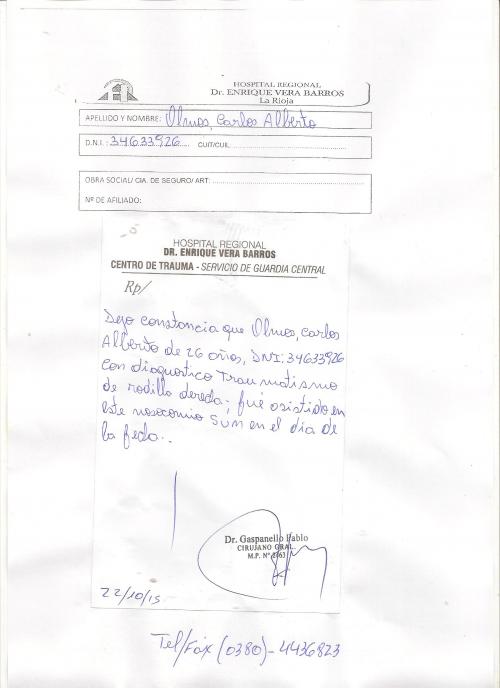 HOSPITAL REGIONAL
Dr. ENRIQUE VERA BARROS
La Rioja
APELLIDO Y NOMBRE: Olmos, Carlos Alberto
D.N.I. : 34633926 CUIT/CUIL
OBRA SOCIAL/ CIA. DE SEGURO/ ART:
Nº DE AFILIADO:
HOSPITAL REGIONAL
DR. ENRIQUE VERA BARROS
CENTRO DE TRAUMA - SERVICIO DE GUARDIA CENTRAL
Rp/
Dejo constancia que Olmos, Carlos
Alberto de 26 años, DNI: 34633926
con diagnostico Traumatismo
de rodilla dereda; fué asistido en
este nosocomio en el dia de
la feda..
Dr. Gaspanello Pablo
CIRUJANO GRAL.
M.P. Nº
22/10/15
Tel/Fax (0380)-4436823